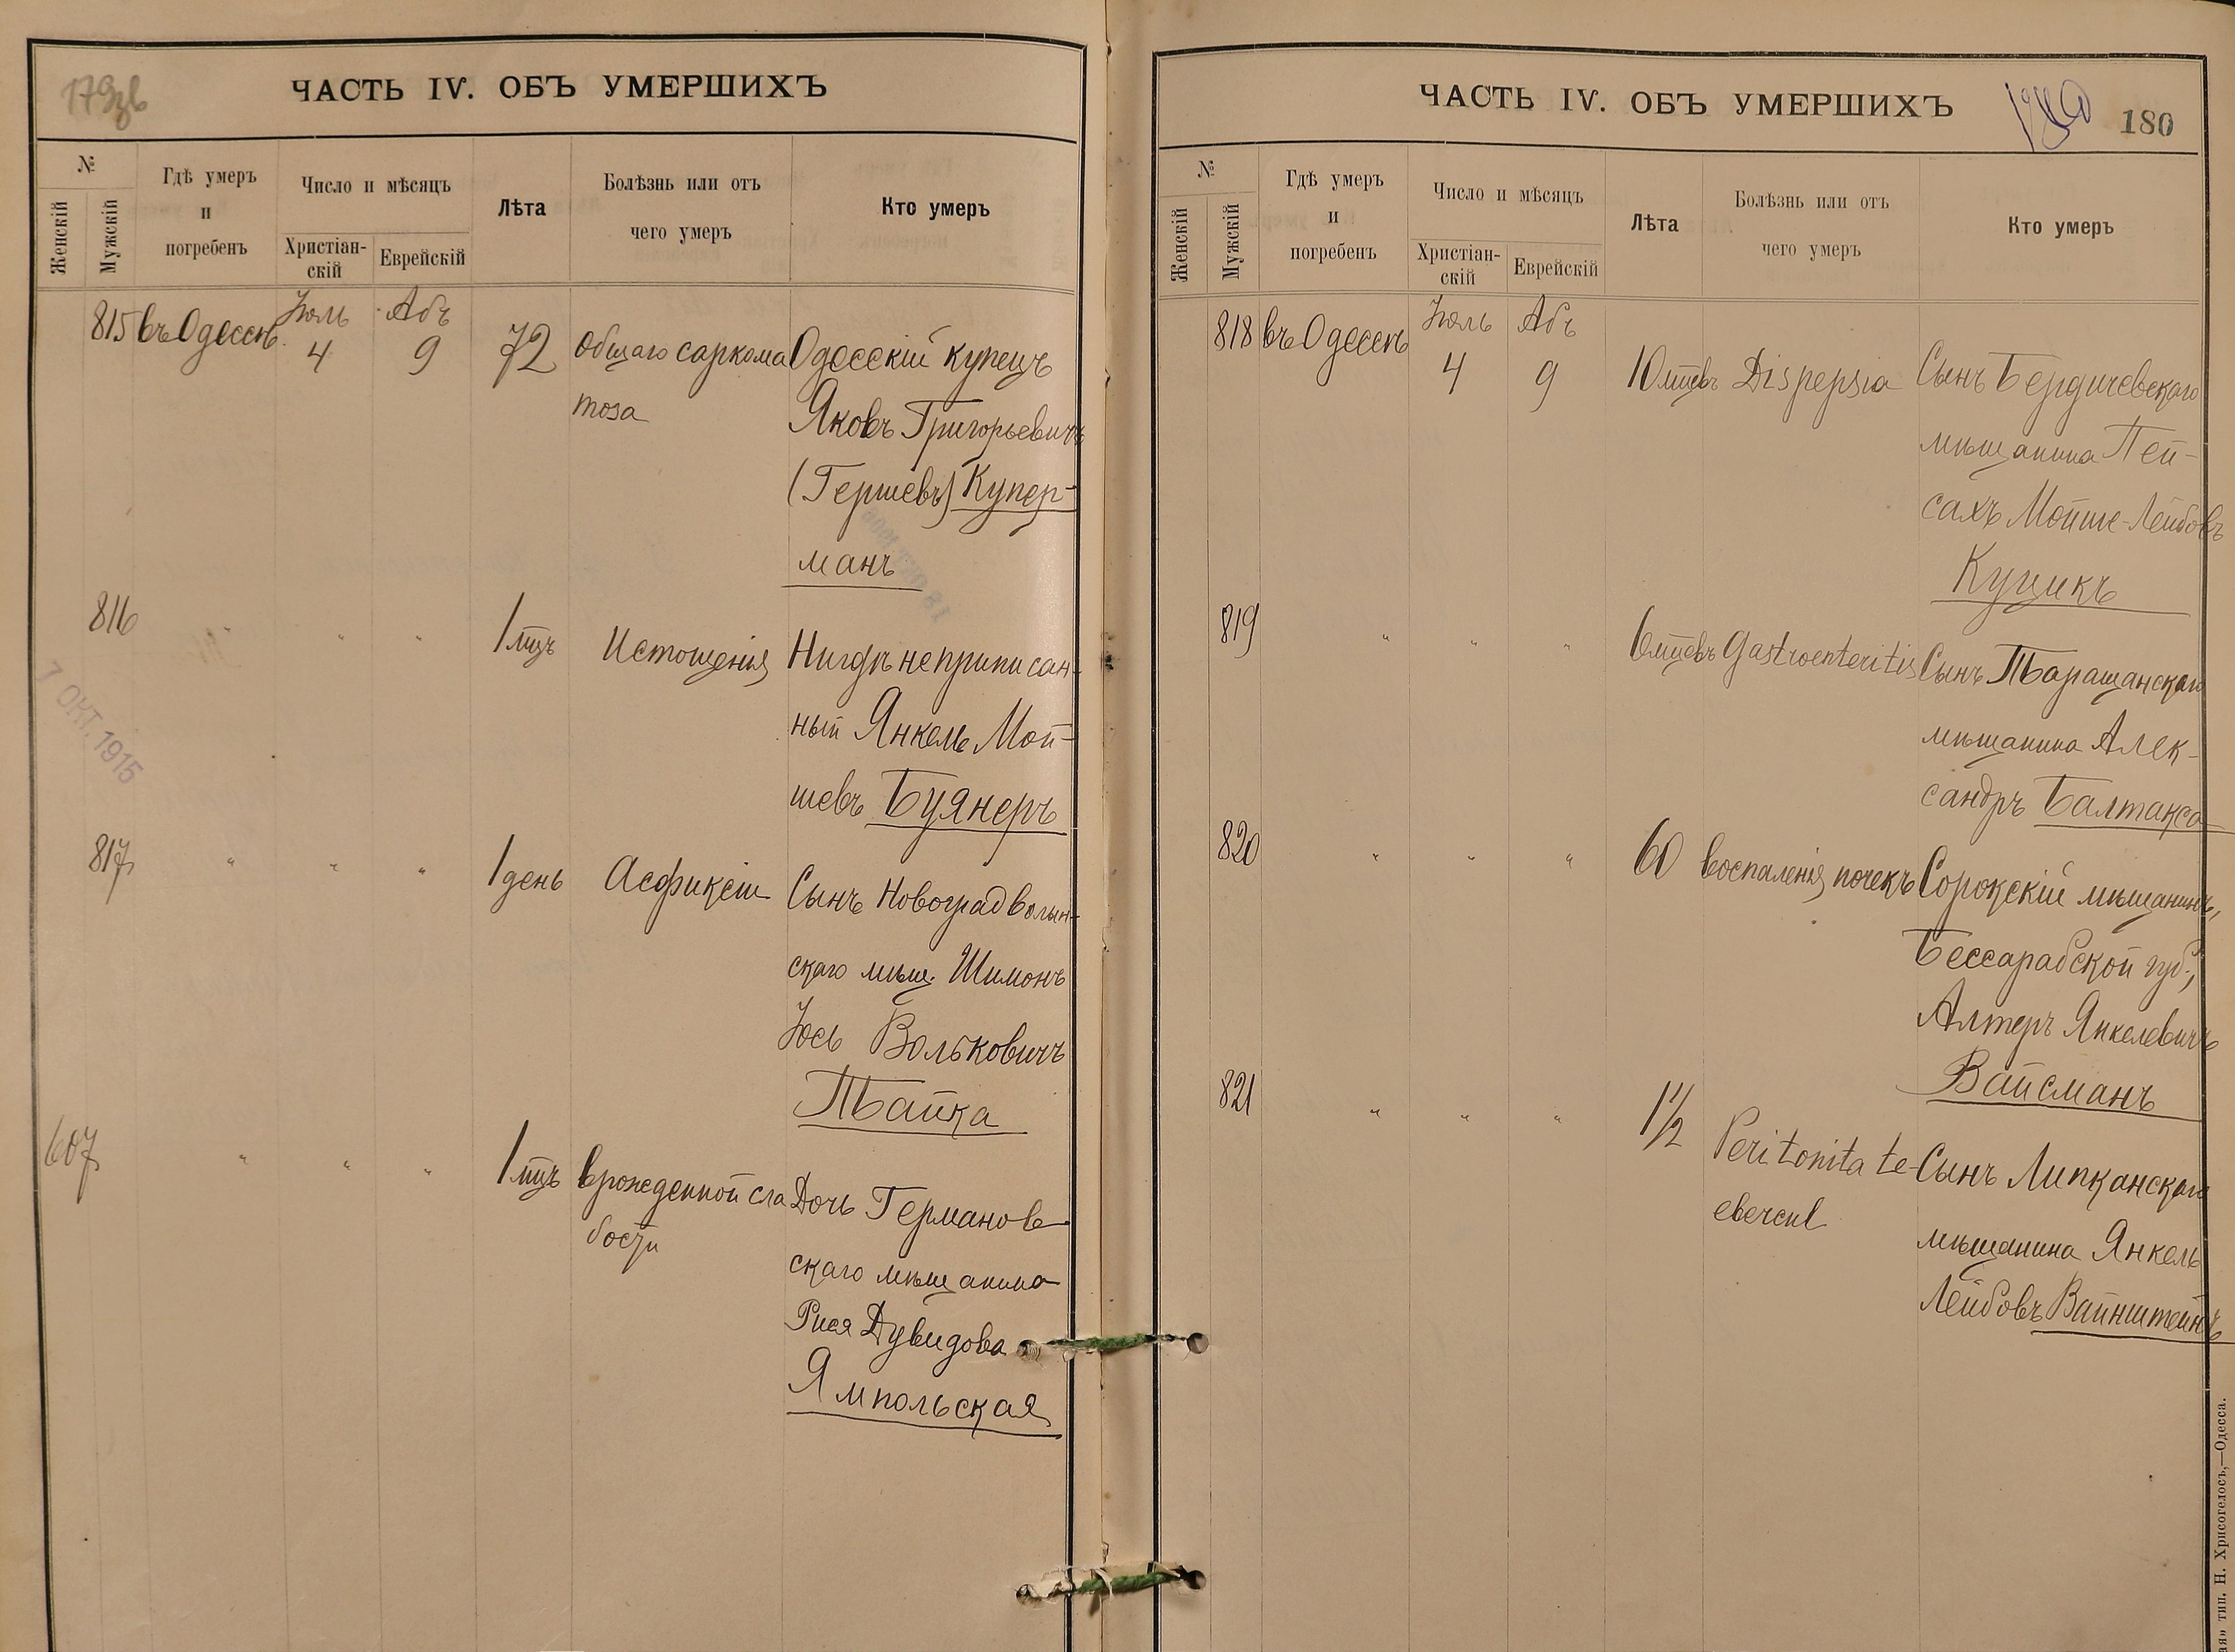 179зв
ЧАСТЬ IV. ОБЪ УМЕРШИХЪ
№
Женскій
Мужскій
Гдѣ умеръ
и
погребенъ
Число и мѣсяцъ
Христіан-
скій
Еврейскій
Лѣта
Болѣзнь или отъ
чего умеръ
Кто умеръ
815 въ Одессѣ Іюль 4 Абъ 9 72 Общаго саркома
тоза
Одесскій купецъ
Яковъ Григорьевичъ
(Гершевъ) Купер-
манъ
816 " " " 1 мцъ Истощенія Нигдѣ неприписан-
ный Янкель Мой-
шевъ Буянеръ
7 ОКТ. 1915
817 " " " 1 день Асфиксіи Сынъ Новоградволын-
скаго мѣщ. Шимонъ
Іось Вольковичъ
Тайка
607 " " " 1 мцъ врожденной сла
бости
Дочь Германов
скаго мѣщанина
Рися Дувидова
Ямпольская
ЧАСТЬ IV. ОБЪ УМЕРШИХЪ
180
№
Женскій
Мужскій
Гдѣ умеръ
и
погребенъ
Число и мѣсяцъ
Христіан-
скій
Еврейскій
Лѣта
Болѣзнь или отъ
чего умеръ
Кто умеръ
818 въ Одессѣ Іюль 4 Абъ 9 10 мцевъ Dispepsia Сынъ Бердичевскаго
мѣщанина Пей-
сахъ Мойше-Лейбовъ
Куцикъ
819 " " " 6 мцевъ Gastroenteritis Сынъ Таращанскаго
мѣщанина Алек-
сандръ Балтакса
820 " " " 60 воспаленія почекъ Сорокскій мѣщанинъ,
Бессарабской губ.,
Алтеръ Янкелевичъ
Вайсманъ
821 " " " 1 1/2 Peritonita te-
ebercul
Сынъ Липканскаго
мѣщанина Янкель
Лейбовъ Вайнштейнъ
тип. Н. Хрисогелосъ,—Одесса.